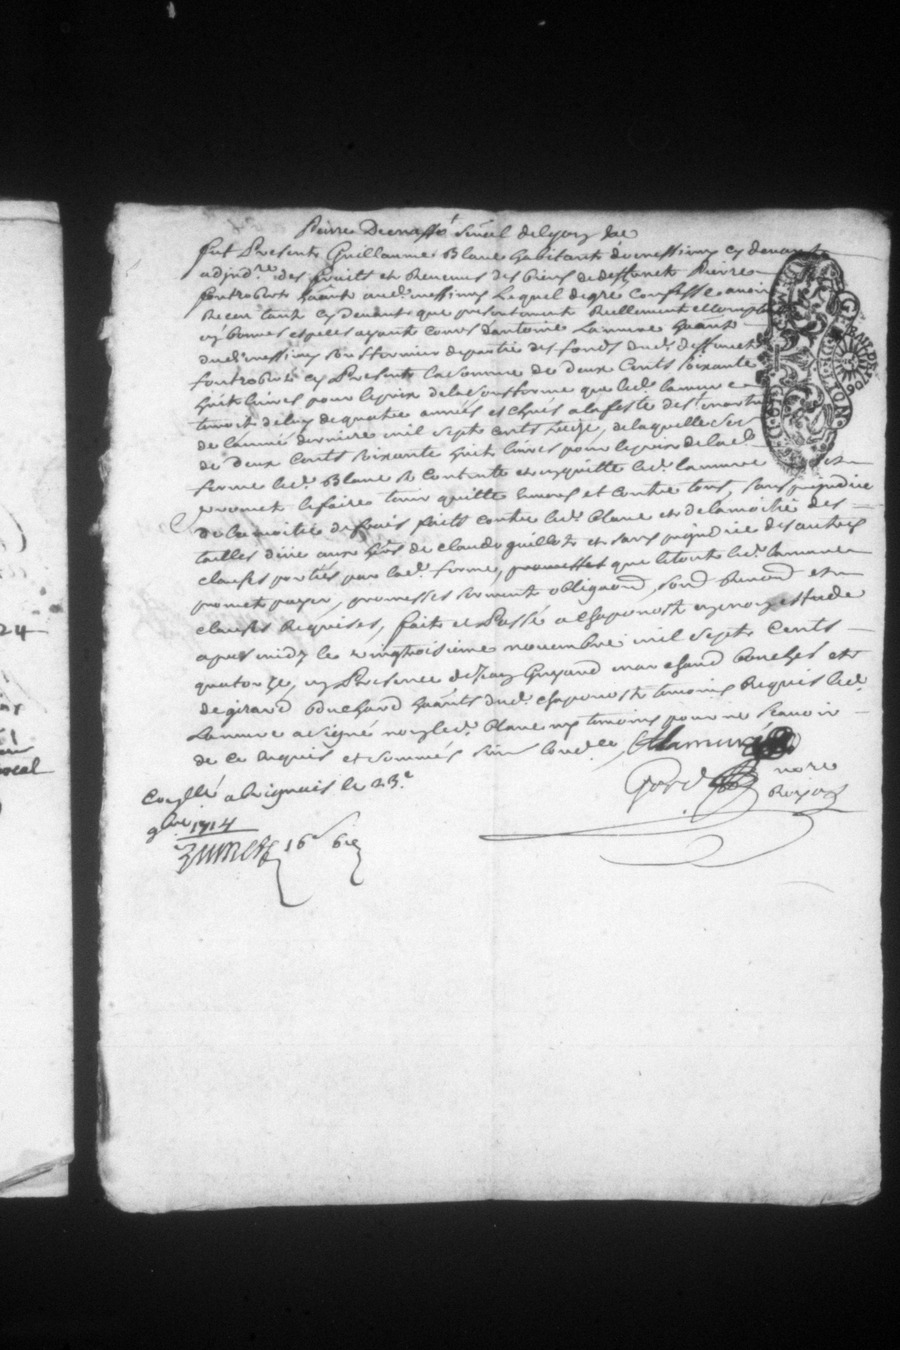 Pierre Decrasse Sénéal de Lyon &c
fut Presents Guillaume Blanc habitant de messimy cy devant
adjud.re des fruits et Revenus des biens de deffunct Pierre
fontrobert hãant aud. messimy lequel de gré confesse avoir
Receu tant cy devant que présentement Reellement et Comptant
en bonnes especes ayant cours d'antoine Lamure hãant
dud. messimy sousfermier de partie des fonds dud. deffunct
fontrobert cy Present la somme de deux Cents soixante
huit livres pour le prix de la sousferme que led. lamure
tenoit de luy de quatre années et echus a la feste de st martin
de l'année derniere mil sept cents treize, de laquelle
de deux Cents soixante huit livres pour le prix de lad.
ferme led. Blanc se contente et en quitte led. lamure et
promet le faire tenir quitte envers et contre tous, sans prejudice
de la moitié de frais faits contre led. Blanc et de la moitié des
tailles düe aux hers de claude guillot et sans prejudice des autres
clauses portés par lad. ferme, promettet que le tout led. lamure
promet payer, promesses serment obligaõn, soud. Renonõn et
clauses Requises, fait et Passé a Chaponost en mon estude
apres midy le vingtroisieme novembre mil sept Cents
quatorze, en Presence de Jean Guyand marchand boucher et
de girard Duchand hãants dud. chaponost temoins Requis led.
Lamure a signé non led. Blanc ny temoins pour ne scavoir
de ce enquis et sommés
A Lamure
Gord nore
Royal
Conllé a brignais le 23.e
9bre 1714
16 s 6 d
24
GEN. DE LYON